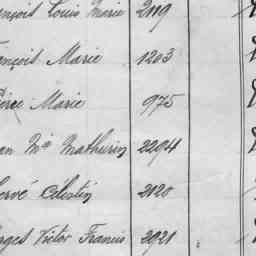 ançois Louis Marie 2119
ançois Marie 1203
Marie 975
an Mie Mathurin 2294
ervé Célestin 2120
orges Victor Francis 2921